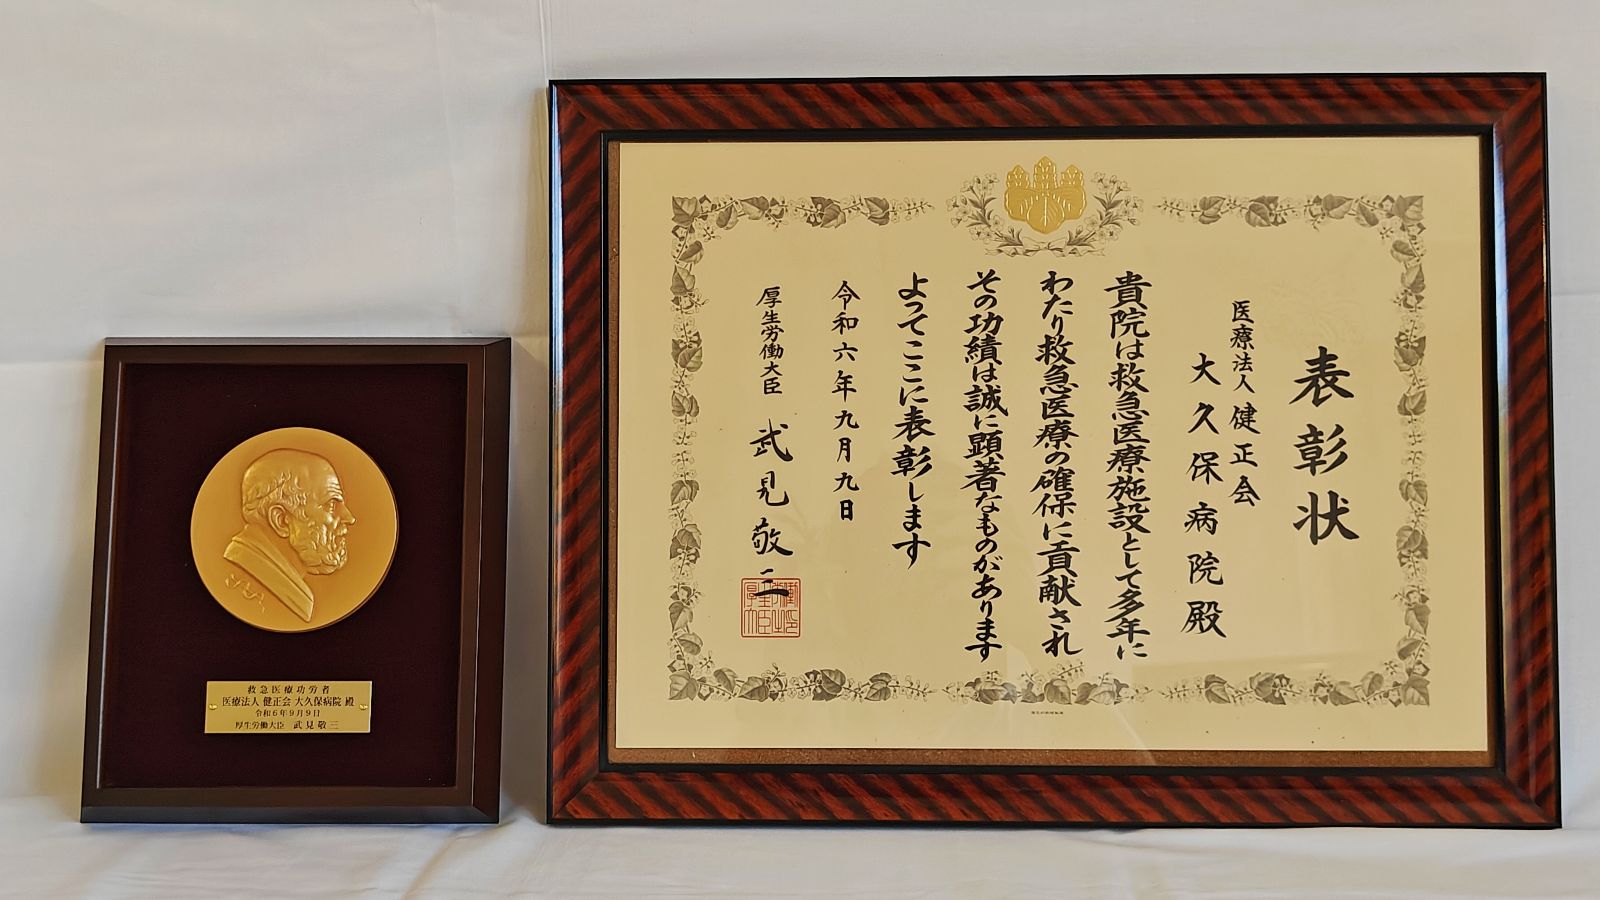 表彰状
医療法人 健正会
大久保病院殿
貴院は救急医療施設として多年に
わたり救急医療の確保に貢献され
その功績は誠に顕著なものがあります
よってここに表彰します
令和六年九月九日
厚生労働大臣 武見敬三
救急医療功労者
医療法人 健正会 大久保病院 殿
令和6年9月9日
厚生労働大臣 武見敬三